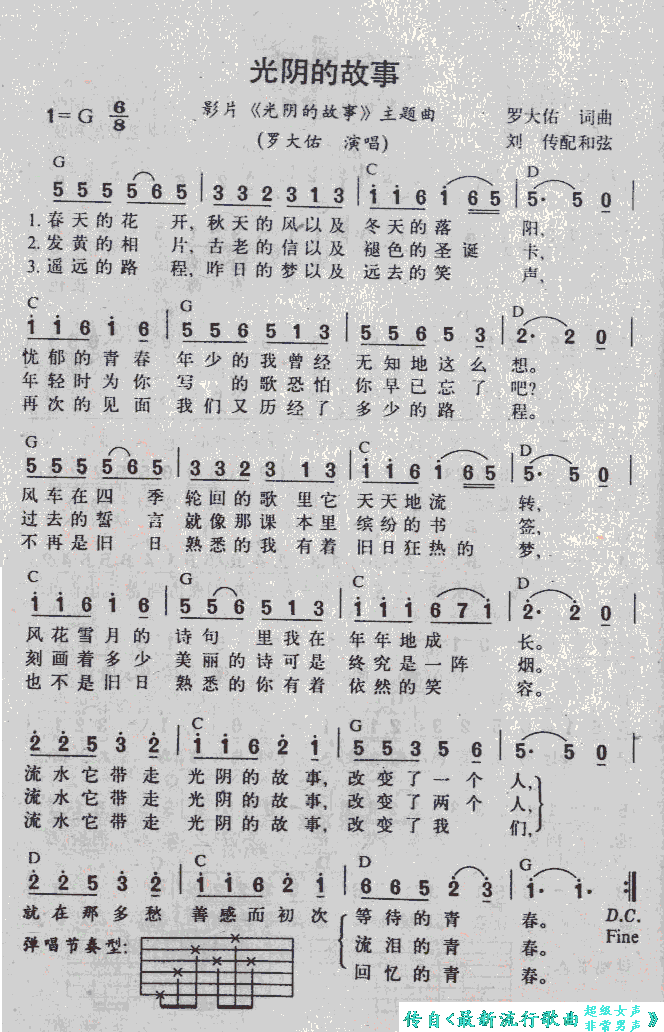 光阴的故事
影片《光阴的故事》主题曲
(罗大佑 演唱)
罗大佑 词曲
刘 传配和弦
1=G 6/8
G C D
5 5 5 5 6 5 | 3 3 2 3 1 3 | i i 6 i 6 5 | 5· 5 0
1. 春天的花 开, 秋天的风以及 冬天的落 阳,
2. 发黄的相 片, 古老的信以及 褪色的圣诞 卡,
3. 遥远的路 程, 昨日的梦以及 远去的笑 声,
C G D
i i 6 i 6 | 5 5 6 5 1 3 | 5 5 6 5 3 | 2· 2 0
忧郁的青春 年少的我曾经 无知地这么 想。
年轻时为你 写 的歌恐怕 你早已忘了 吧?
再次的见面 我们又历经了 多少的路 程。
G C D
5 5 5 5 6 5 | 3 3 2 3 1 3 | i i 6 i 6 5 | 5· 5 0
风车在四 季 轮回的歌 里它 天天地流 转,
过去的誓 言 就像那课 本里 缤纷的书 签,
不再是旧 日 熟悉的我 有着 旧日狂热的 梦,
C G C D
i i 6 i 6 | 5 5 6 5 1 3 | i i i 6 7 i | 2· 2 0
风花雪月的 诗句 里我在 年年地成 长。
刻画着多少 美丽的诗可是 终究是一阵 烟。
也不是旧日 熟悉的你有着 依然的笑 容。
C G
2 2 5 3 2 | i i 6 2 i | 5 5 3 5 6 | 5· 5 0
流水它带走 光阴的故事, 改变了一个 人,
流水它带走 光阴的故事, 改变了两个 人,
流水它带走 光阴的故事, 改变了我 们,
D C D G
2 2 5 3 2 | i i 6 2 i | 6 6 5 2 3 | i· i· :||
就在那多愁 善感而初次 等待的青 春。 D.C.
弹唱节奏型: 流泪的青 春。 Fine
回忆的青 春。
传自《最新流行歌曲 超级女声 非常男声 》